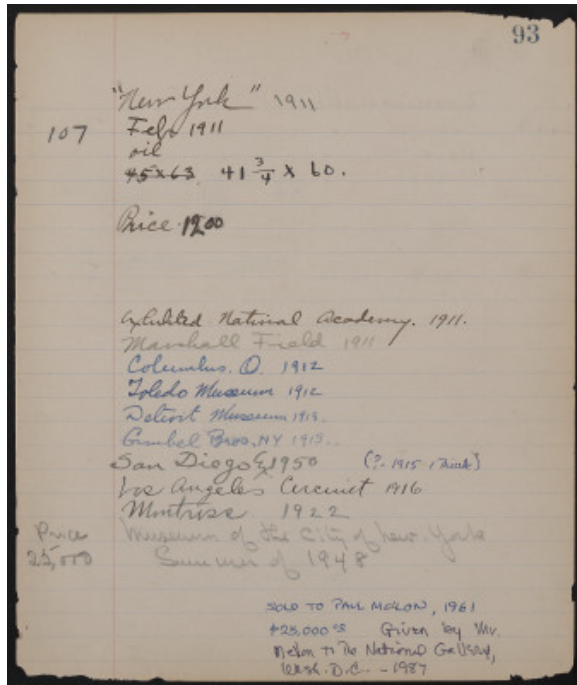 93
"New York" 1911
107 Feb. 1911
oil
45x63 41 3/4 x 60.
Price 1200
Exhibited National Academy. 1911.
Marshall Field 1911
Columbus. O. 1912
Toledo Museum 1912
Detroit Museum 1913.
Gimbel Bros, NY 1913..
San Diego 1950 (?-1915 I think)
Los Angeles Circuit 1916
Montross 1922
Price Museum of the City of New York
25,000 Summer of 1948
SOLD TO PAUL MELLON, 1961
$25,000 00 Given by Mr.
Mellon to the National Gallery,
Wash. D.C. - 1987